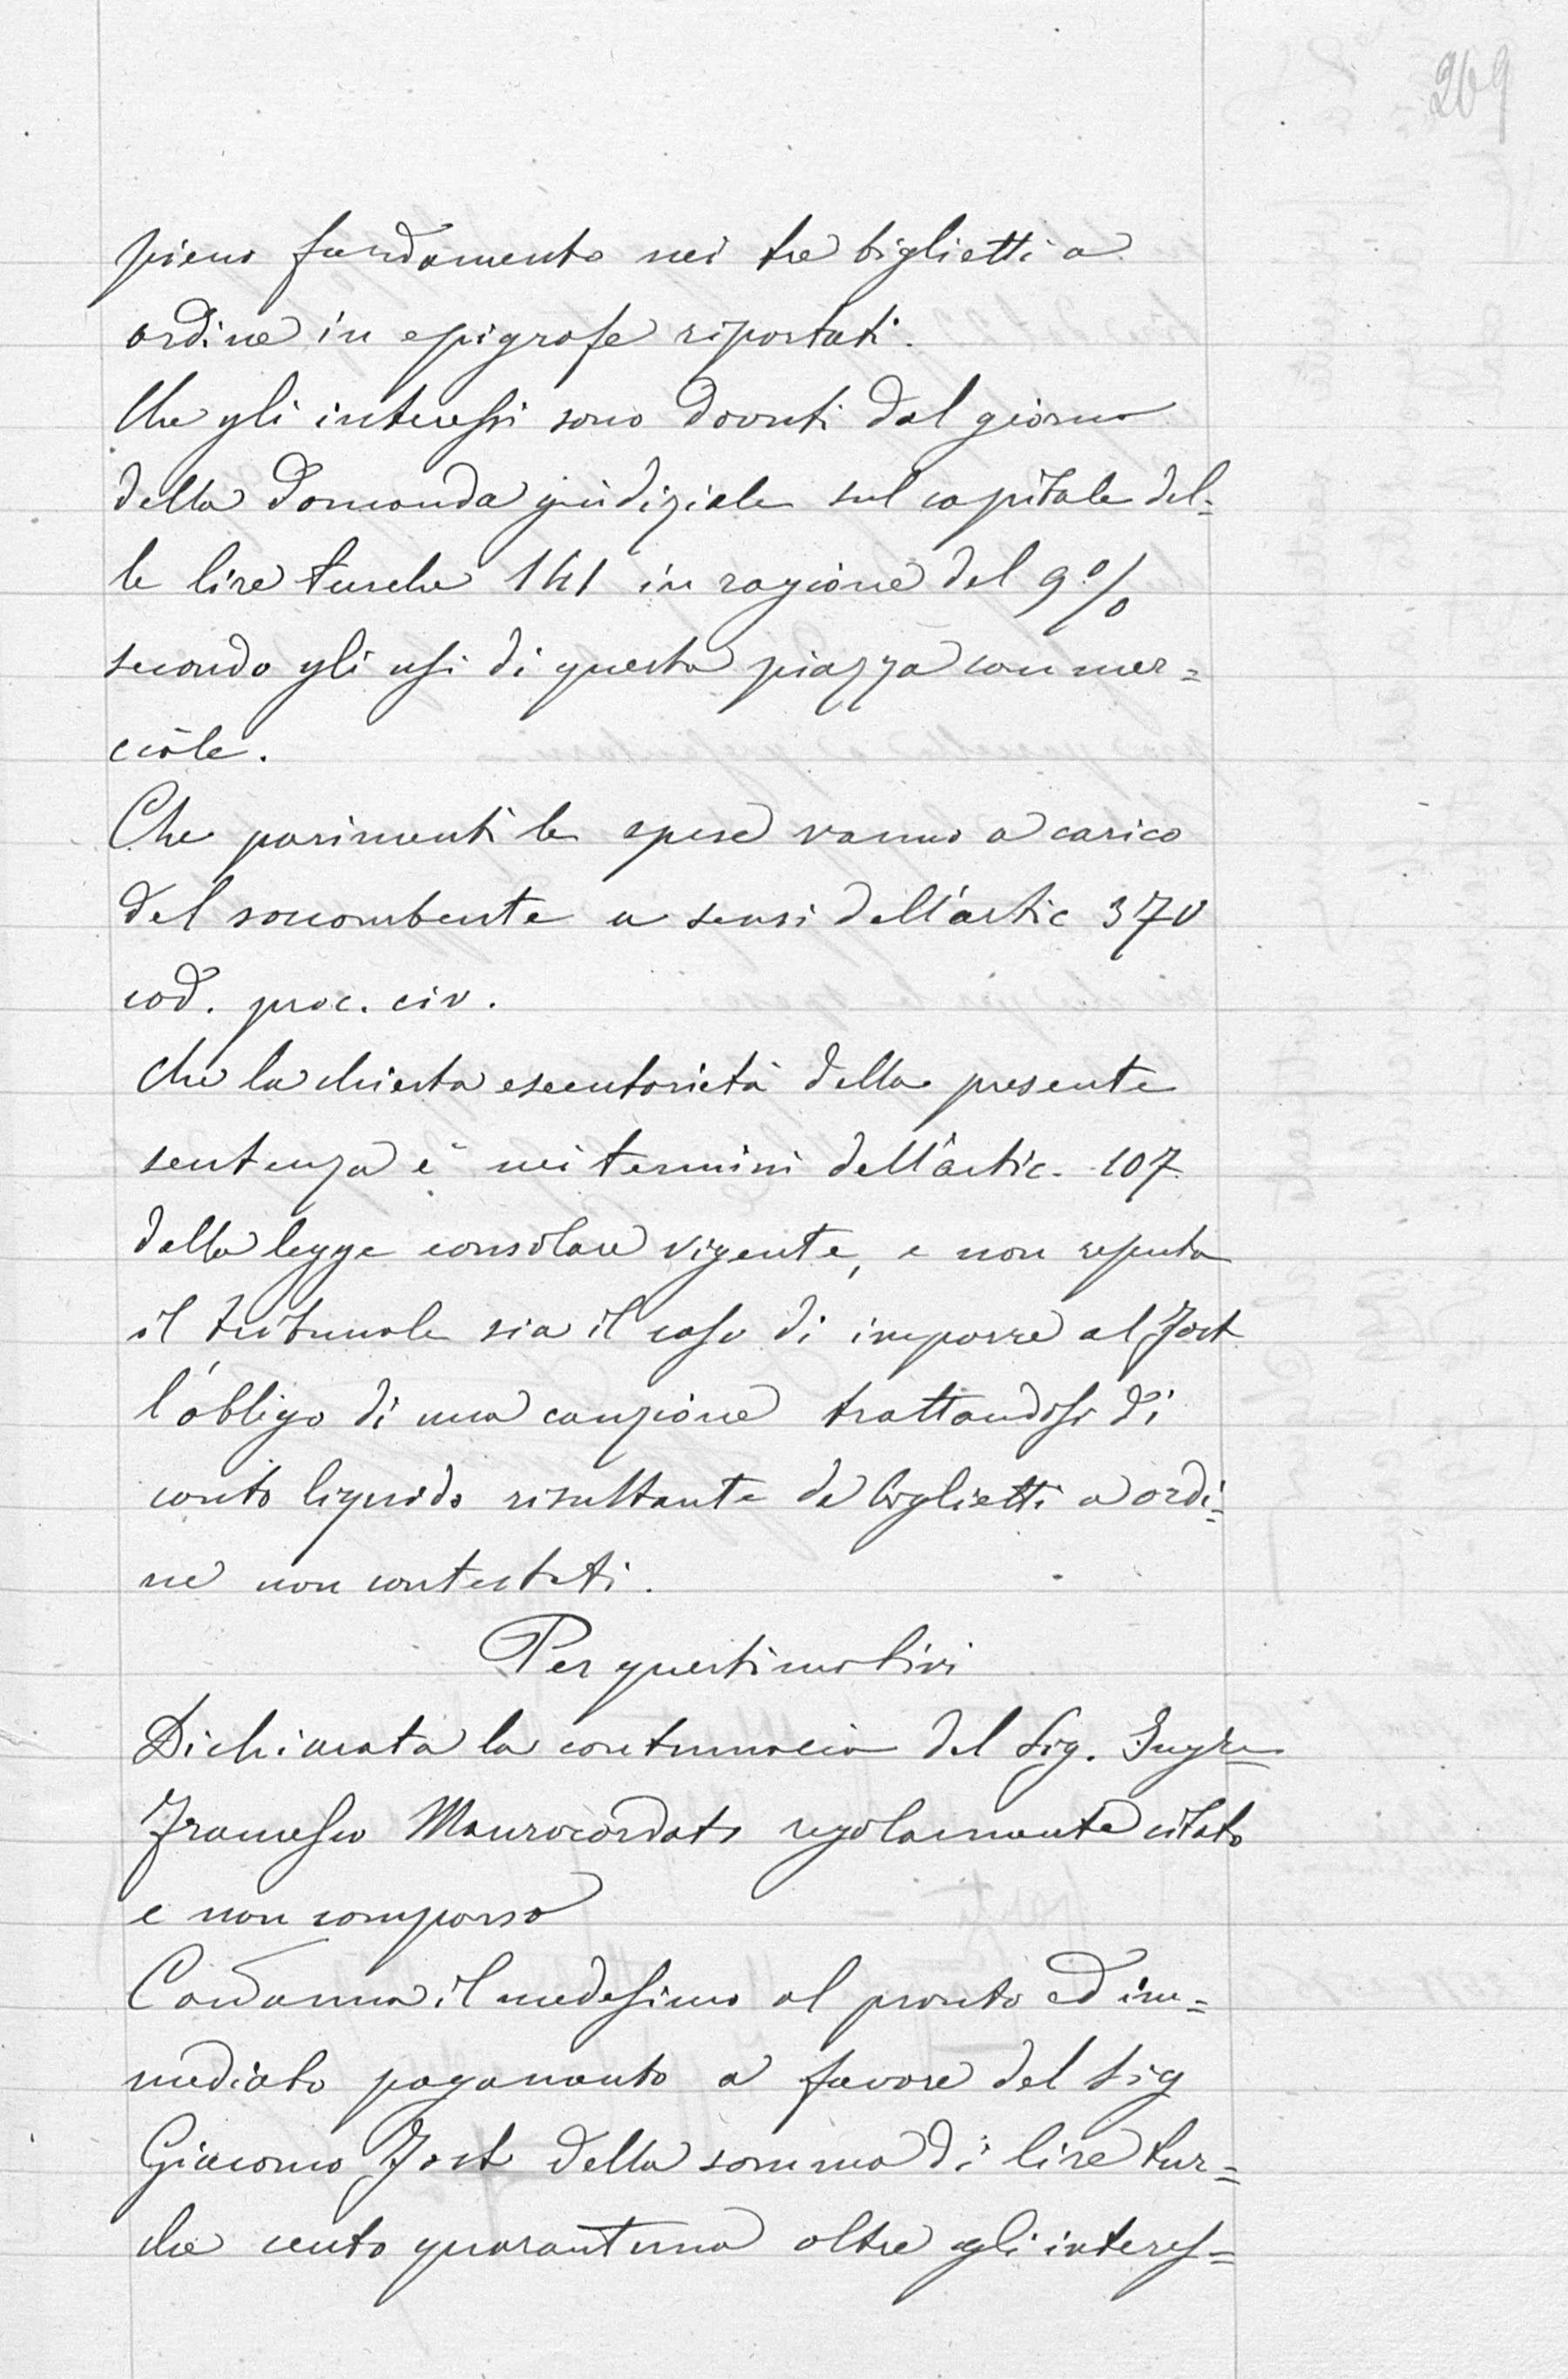 269
pieno fundamento nei tre biglietti a
ordine in epigrafe riportati.
Che gli interessi sono dovuti dal giorno
della domanda giudiziale sul capitale del=
le lire turche 141 in ragione del 9%
secondo gli usi di questa piazza commer=
ciale.
Che parimenti le spese vanno a carico
del soccombente a sensi dell'artic 370
cod. proc. civ.
Che la chiesta esecutorietà della presente
sentenza è nei termini dell'artic. 107
della legge consolare vigente, e non reputa
il tribunale sia il caso di imporre al Jost
l'obbligo di una cauzione trattandosi di
conto liquido risultante da biglietti a ordi=
ne non contestati.
Per questi motivi
Dichiarata la contumacia del Sig. Ingre
Francesco Maurocordato regolarmente citato
e non comparso
Condanna il medesimo al pronto ed im=
mediato pagamento a favore del Sig
Giacomo Jost della somma di lire tur=
che cento quarantuna oltre gli interes=